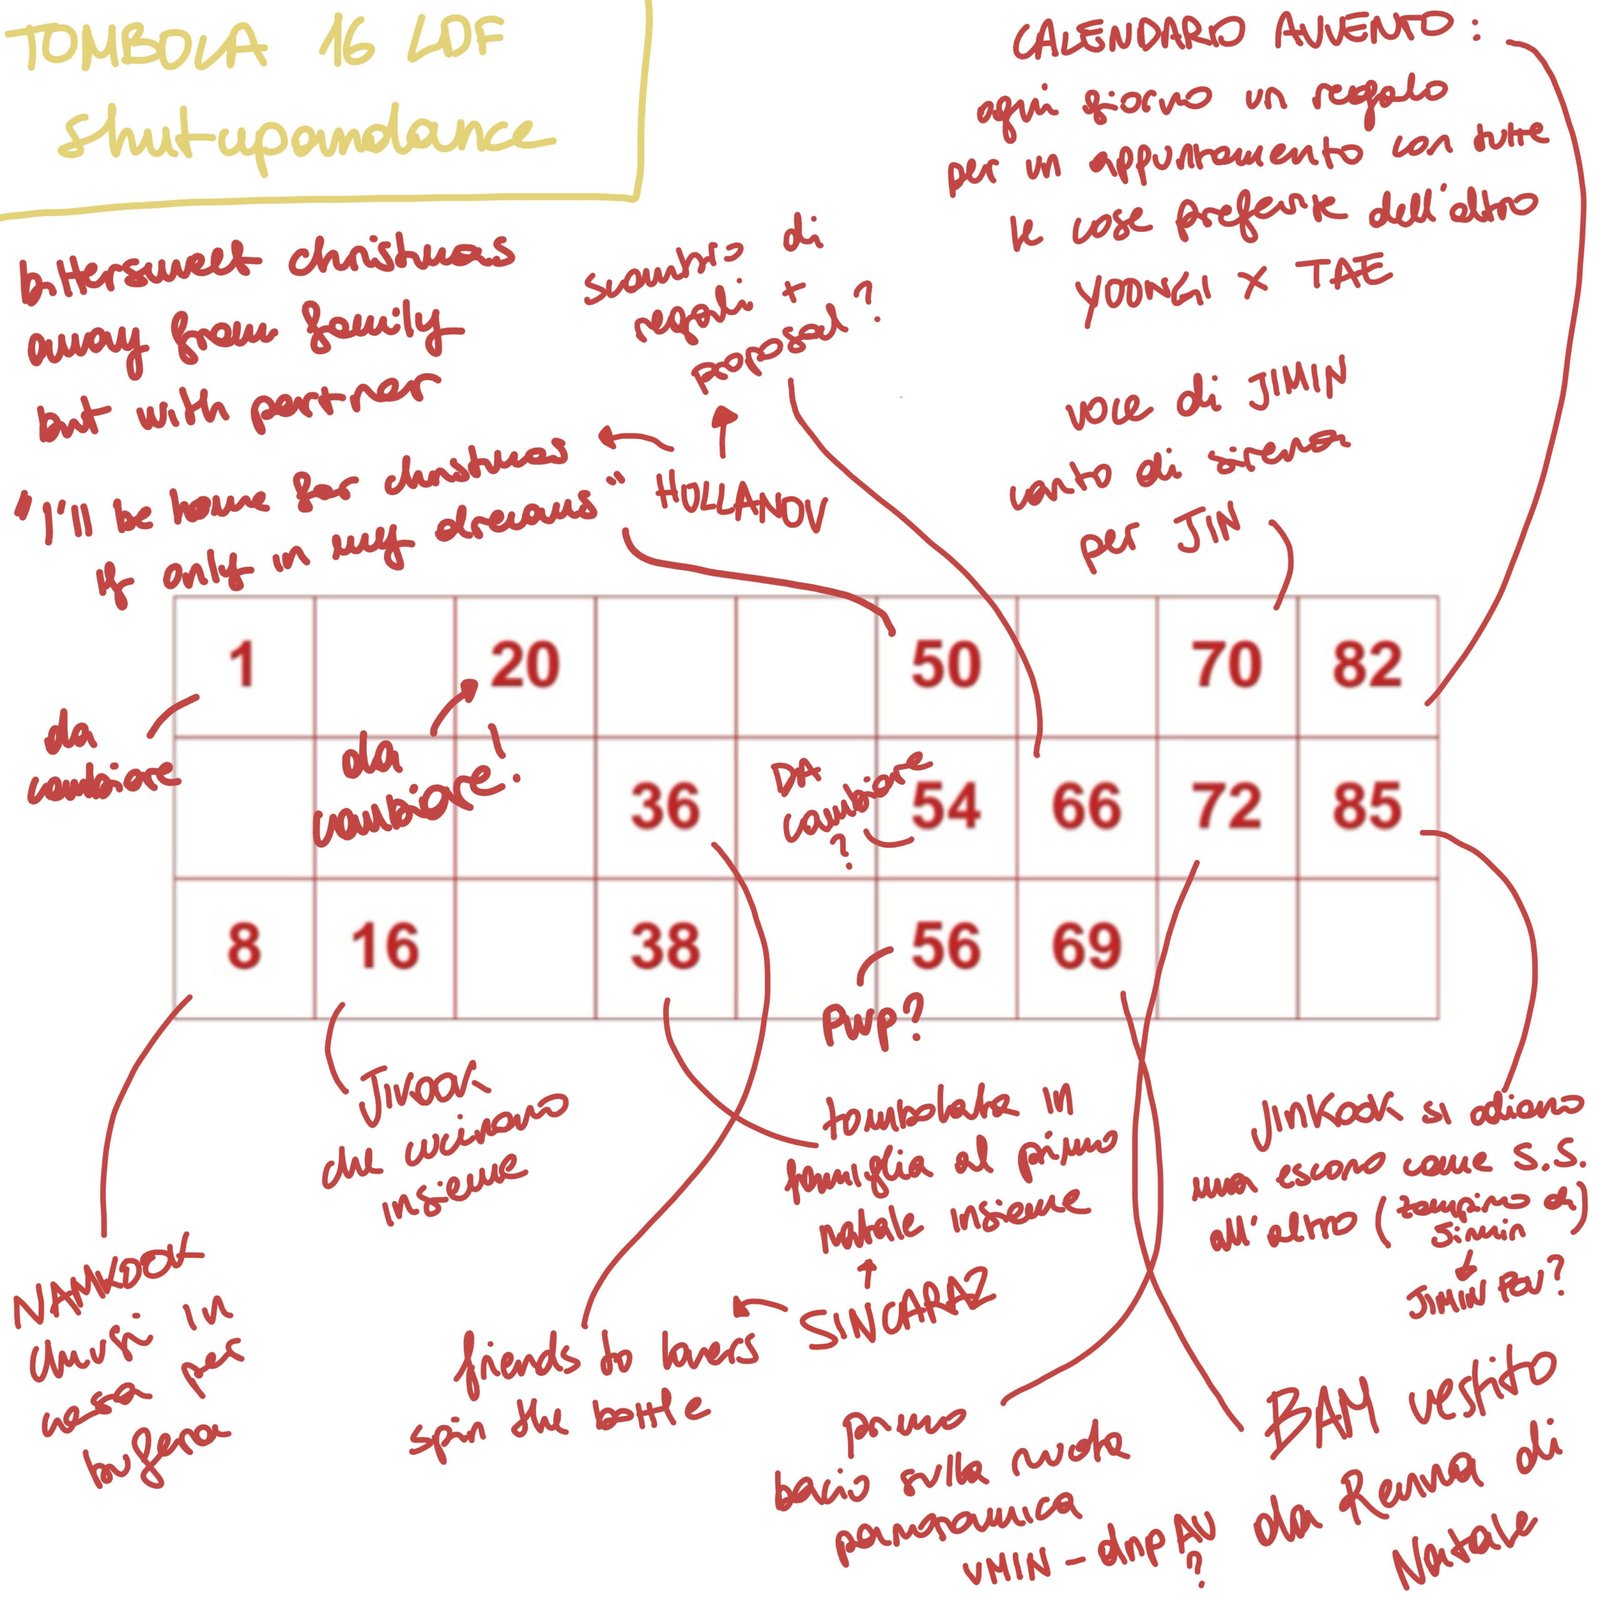 TOMBOLA 16 LDF
shutupandance
CALENDARIO AVVENTO:
ogni giorno un regalo
per un appuntamento con tutte
le cose preferite dell'altro
YOONGI X TAE
bittersweet christmas
away from family
but with partner
"I'll be home for christmas
if only in my dreams"
scambio di
regali +
proposal?
HOLLANOV
voce di JIMIN
canto di sirena
per JIN
1 20 50 70 82
da
cambiare
da
cambiare!
36 54 66 72 85
DA
cambiare
?
8 16 38 56 69
PWP?
JIKOOK
che cucinano
insieme
tombolata in
famiglia al primo
natale insieme
SINCARAZ
friends to lovers
spin the bottle
JINKOOK si odiano
ma escono come S.S.
all'altro (zampino di
Jimin)
JIMIN POV?
NAMKOOK
chiusi in
casa per
bufera
primo
bacio sulla ruota
panoramica
VMIN - dnp AU
?
BAM vestito
da Renna di
Natale